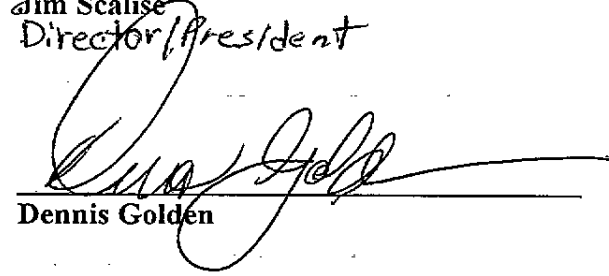 Jim Scalise
Director/President
Dennis Golden